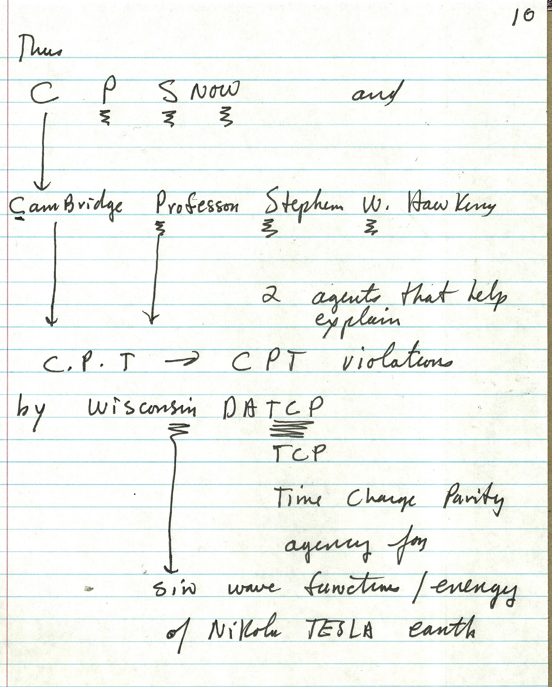 10
Thus
C P S NOW and
CamBridge Professor Stephen W. HawKing
2 agents that help
explain
C.P.T → CPT violations
by Wisconsin DATCP
TCP
Time Charge Parity
agency for
sin wave functions/energy
of Nikola TESLA earth